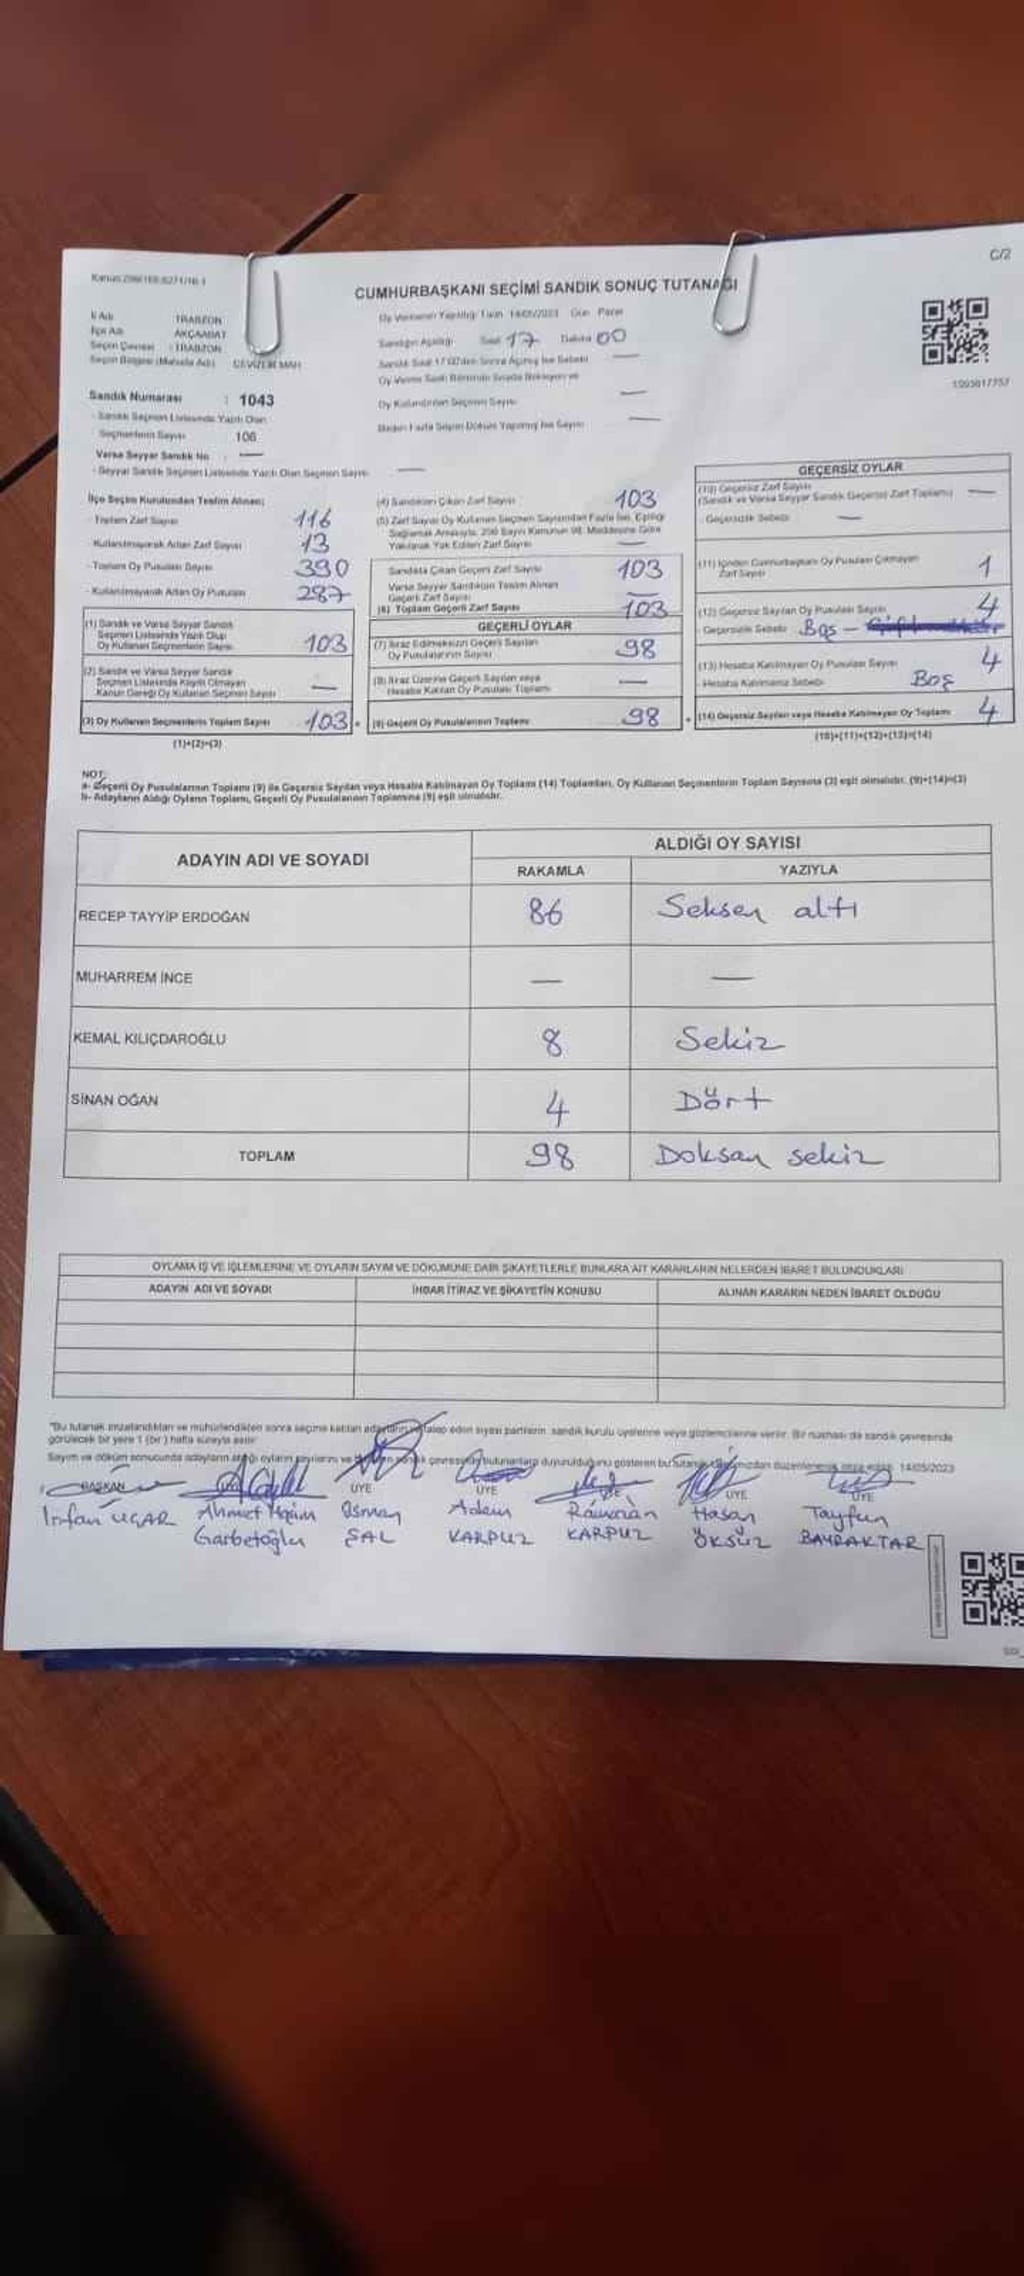 C/2
CUMHURBAŞKANI SEÇİMİ SANDIK SONUÇ TUTANAĞI
İl Adı TRABZON
İlçe Adı AKÇAABAT
Seçim Çevresi : TRABZON
Seçim Bölgesi (Mahalle Adı) CEVİZLİK MAH
Sandık Numarası : 1043
- Sandık Seçmen Listesinde Yazılı Olan
Seçmenlerin Sayısı 106
Varsa Seyyar Sandık No : —
- Seyyar Sandık Seçmen Listesinde Yazılı Olan Seçmen Sayısı —
Oy Vermenin Yapıldığı Tarih 14/05/2023 Gün Pazar
Sandığın Açıldığı Saat 17 Dakika 00
Sandık Saat 17.00'den Sonra Açılmış İse Sebebi —
Oy Verme Saati Bitiminde Sırada Bekleyen ve
Oy Kullandırılan Seçmen Sayısı —
Birden Fazla Sayım Döküm Yapılmış İse Sayısı —
1093617757
İlçe Seçim Kurulundan Teslim Alınan;
- Toplam Zarf Sayısı 116
- Kullanılmayarak Artan Zarf Sayısı 13
- Toplam Oy Pusulası Sayısı 390
- Kullanılmayarak Artan Oy Pusulası 287
(1) Sandık ve Varsa Seyyar Sandık
Seçmen Listesinde Yazılı Olup
Oy Kullanan Seçmenlerin Sayısı 103
(2) Sandık ve Varsa Seyyar Sandık
Seçmen Listesinde Kayıtlı Olmayan
Kanun Gereği Oy Kullanan Seçmen Sayısı —
(3) Oy Kullanan Seçmenlerin Toplam Sayısı 103
(1)+(2)=(3)
(4) Sandıktan Çıkan Zarf Sayısı 103
(5) Zarf Sayısı Oy Kullanan Seçmen Sayısından Fazla İse, Eşitliği
Sağlamak Amacıyla, 298 Sayılı Kanunun 98. Maddesine Göre
Yakılarak Yok Edilen Zarf Sayısı —
Sandıkta Çıkan Geçerli Zarf Sayısı 103
Varsa Seyyar Sandıktan Teslim Alınan
Geçerli Zarf Sayısı —
(6) Toplam Geçerli Zarf Sayısı 103
GEÇERLİ OYLAR
(7) İtiraz Edilmeksizin Geçerli Sayılan
Oy Pusulalarının Sayısı 98
(8) İtiraz Üzerine Geçerli Sayılan veya
Hesaba Katılan Oy Pusulası Toplamı —
(9) Geçerli Oy Pusulalarının Toplamı 98
GEÇERSİZ OYLAR
(10) Geçersiz Zarf Sayısı
(Sandık ve Varsa Seyyar Sandık Geçersiz Zarf Toplamı) —
- Geçersizlik Sebebi —
(11) İçinden Cumhurbaşkanı Oy Pusulası Çıkmayan
Zarf Sayısı 1
(12) Geçersiz Sayılan Oy Pusulası Sayısı 4
- Geçersizlik Sebebi Boş –
(13) Hesaba Katılmayan Oy Pusulası Sayısı 4
- Hesaba Katılmama Sebebi Boş
(14) Geçersiz Sayılan veya Hesaba Katılmayan Oy Toplamı 4
(10)+(11)+(12)+(13)=(14)
NOT:
a- Geçerli Oy Pusulalarının Toplamı (9) ile Geçersiz Sayılan veya Hesaba Katılmayan Oy Toplamı (14) Toplamları, Oy Kullanan Seçmenlerin Toplam Sayısına (3) eşit olmalıdır. (9)+(14)=(3)
b- Adayların Aldığı Oyların Toplamı, Geçerli Oy Pusulalarının Toplamına (9) eşit olmalıdır.
ADAYIN ADI VE SOYADI
ALDIĞI OY SAYISI
RAKAMLA YAZIYLA
RECEP TAYYİP ERDOĞAN 86 Seksen altı
MUHARREM İNCE — —
KEMAL KILIÇDAROĞLU 8 Sekiz
SİNAN OĞAN 4 Dört
TOPLAM 98 Doksan sekiz
OYLAMA İŞ VE İŞLEMLERİNE VE OYLARIN SAYIM VE DÖKÜMÜNE DAİR ŞİKAYETLERLE BUNLARA AİT KARARLARIN NELERDEN İBARET BULUNDUKLARI
ADAYIN ADI VE SOYADI İHBAR İTİRAZ VE ŞİKAYETİN KONUSU ALINAN KARARIN NEDEN İBARET OLDUĞU
"Bu tutanak imzalandıktan ve mühürlendikten sonra seçime katılan adayların talep eden siyasi partilerin sandık kurulu üyelerine veya gözlemcilerine verilir. Bir nüshası da sandık çevresinde
görülecek bir yere 1 (bir) hafta süreyle asılır.
Sayım ve döküm sonucunda adayların aldığı oyların sayılarını ve çevresinde bulunanlara duyurulduğunu gösteren bu tutanak 14/05/2023
BAŞKAN ÜYE ÜYE ÜYE ÜYE ÜYE
İrfan UÇAR Ahmet Osman Adem Ramazan Hasan Tayfun
Garbetoğlu ŞAL KARPUZ KARPUZ ÖKSÜZ BAYRAKTAR